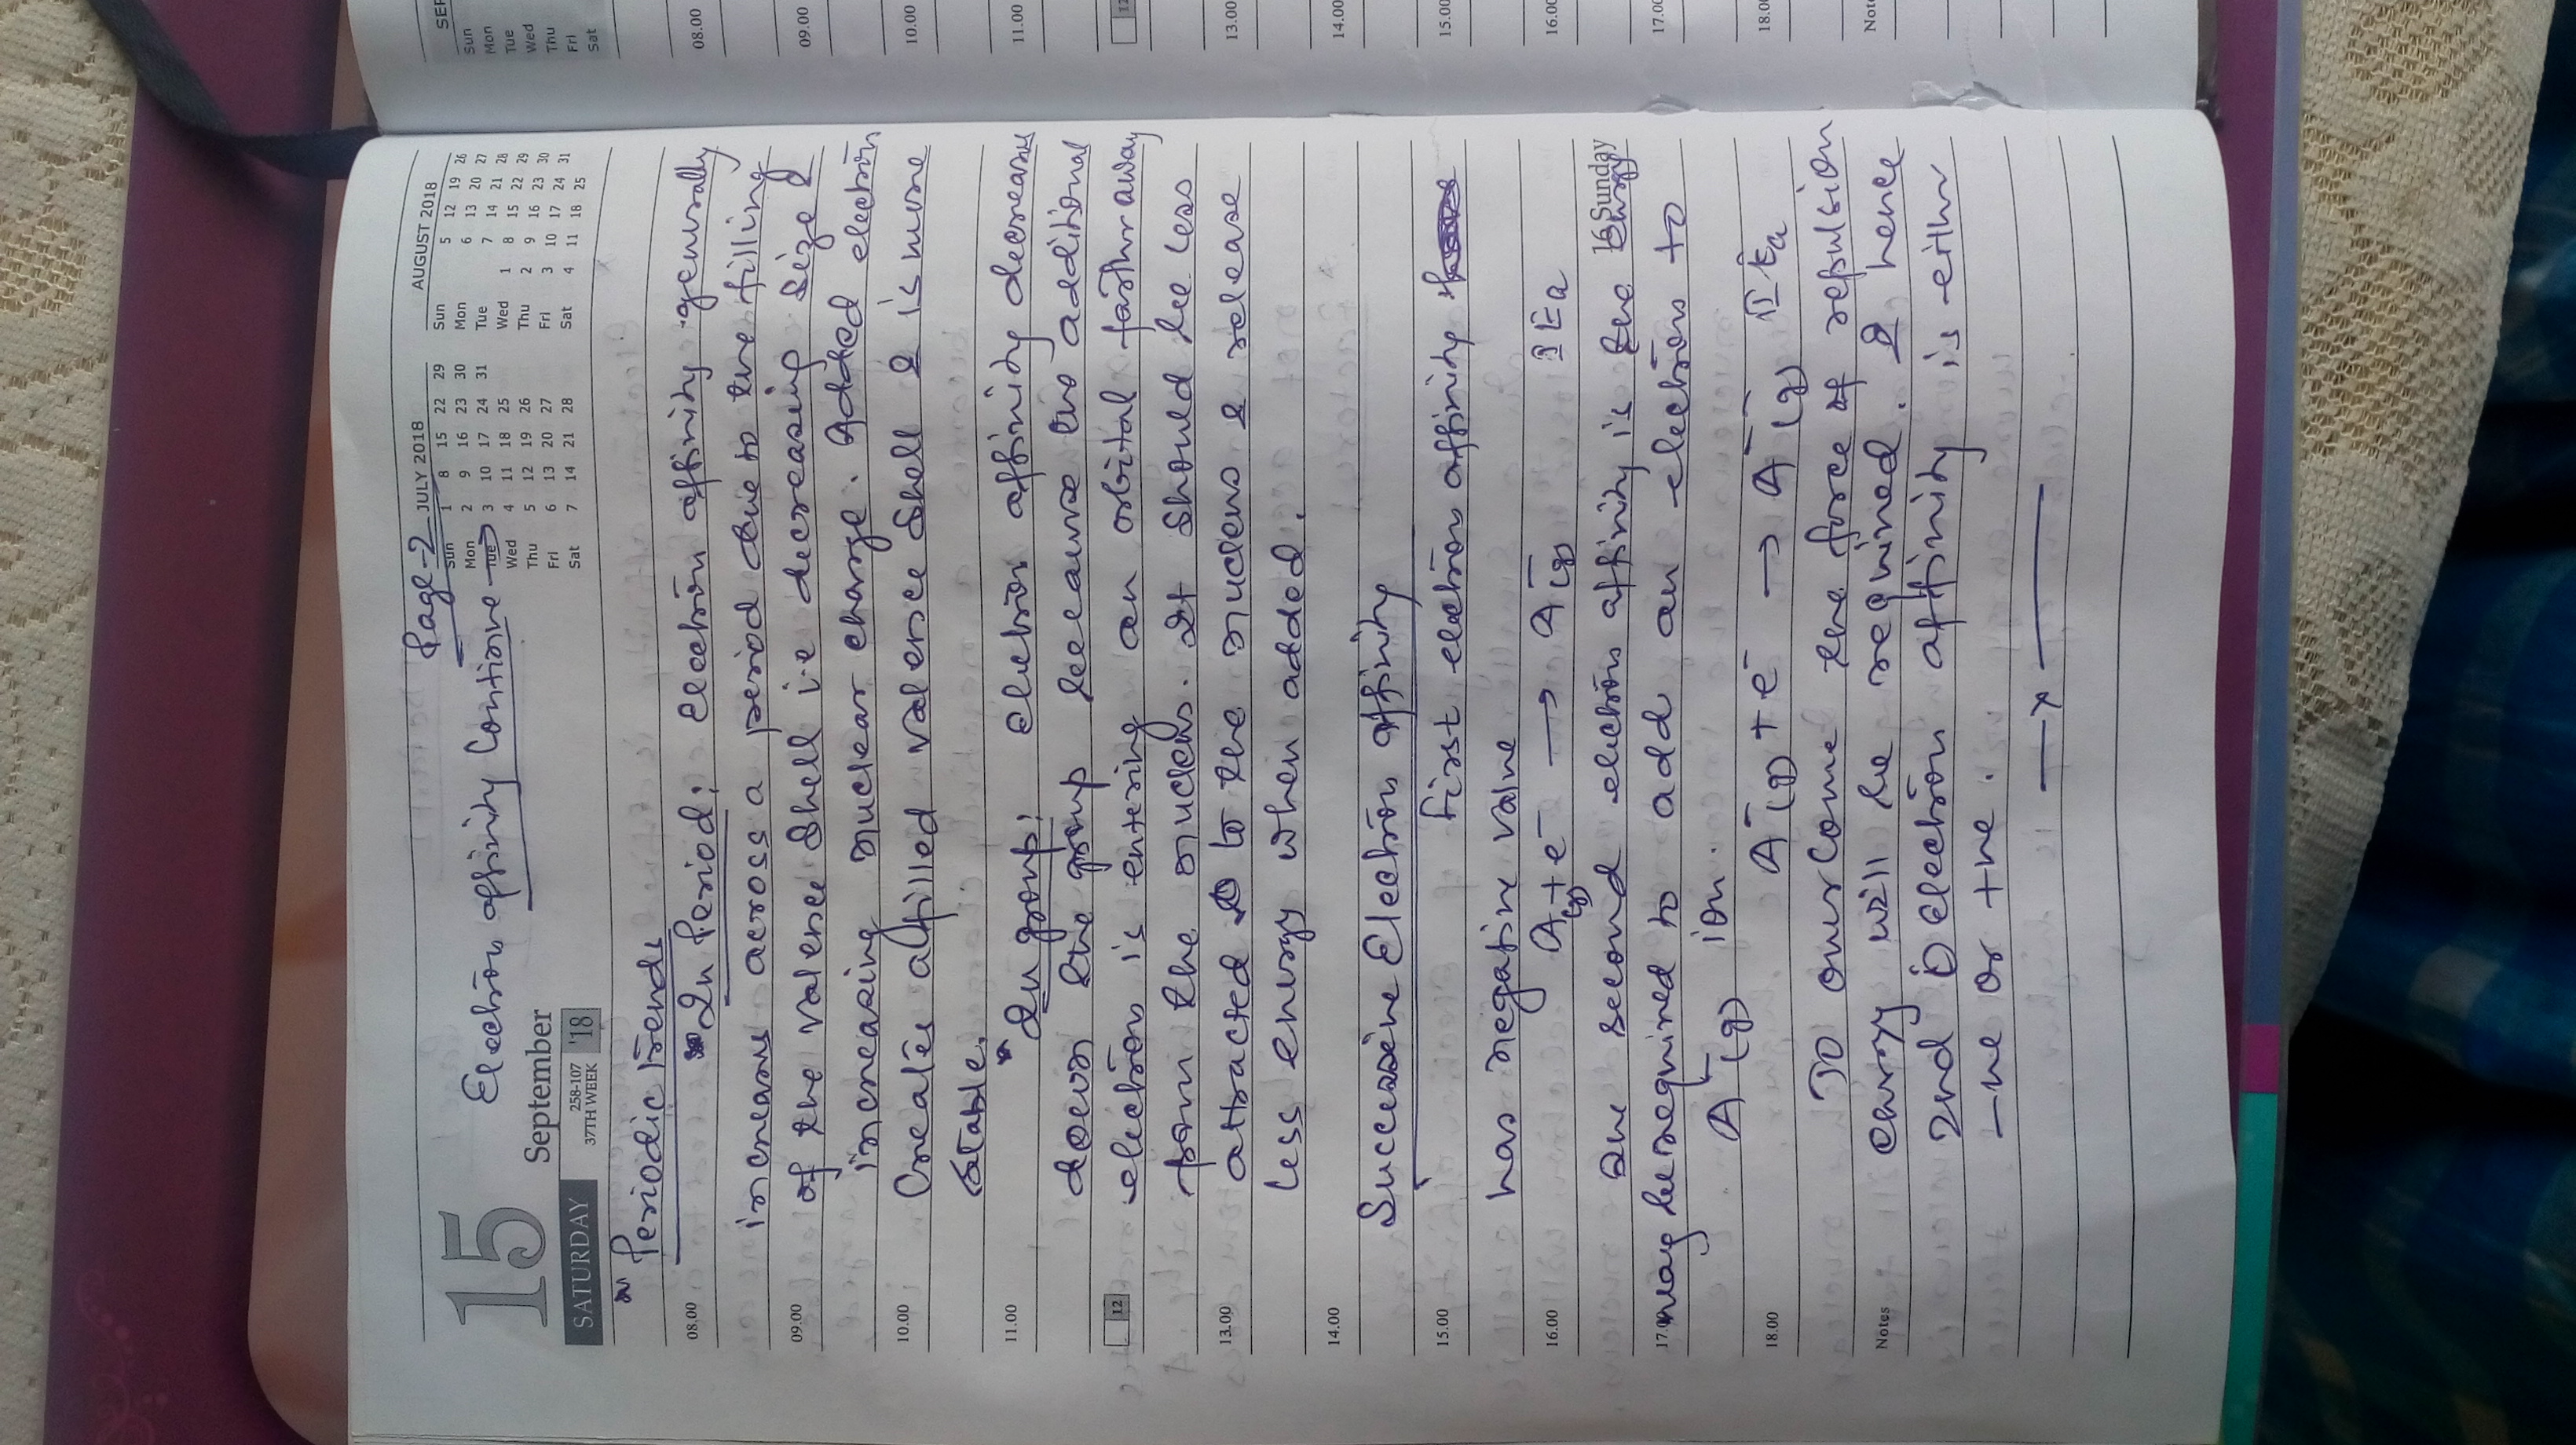 Page-2
Electron affinity Continue →
15
September
SATURDAY
258-107
37TH WEEK '18
JULY 2018
Sun 1 8 15 22 29
Mon 2 9 16 23 30
Tue 3 10 17 24 31
Wed 4 11 18 25
Thu 5 12 19 26
Fri 6 13 20 27
Sat 7 14 21 28
AUGUST 2018
Sun 5 12 19 26
Mon 6 13 20 27
Tue 7 14 21 28
Wed 1 8 15 22 29
Thu 2 9 16 23 30
Fri 3 10 17 24 31
Sat 4 11 18 25
Periodic trends
08.00 In Period: Electron affinity generally
increases across a period due to the filling
09.00 of the valence shell i.e decreasing size &
increasing nuclear charge. Added electron
10.00 Creates a filled valence shell & is more
stable.
11.00 In group: electron affinity decreases
down the group because the additional
12 electron is entering an orbital farther away
from the nucleus. It should be less
13.00 attracted to the nucleus & release
less energy when added.
14.00
Successive Electron affinity
15.00 First electron affinity
has negative value
16.00 A(g) + e⁻ → A⁻(g) I Ea
16 Sunday
The second electron affinity is the energy
17.00 may be required to add an electron to
A⁻(g) ion.
18.00 A⁻(g) + e⁻ → A⁻⁻(g) II Ea
To overcome the force of repulsion
Notes energy will be required. & hence
2nd Electron affinity is either
-ve or +ve.
—x—
SEP
Sun
Mon
Tue
Wed
Thu
Fri
Sat
08.00
09.00
10.00
11.00
12
13.00
14.00
15.00
16.00
17.00
18.00
Note